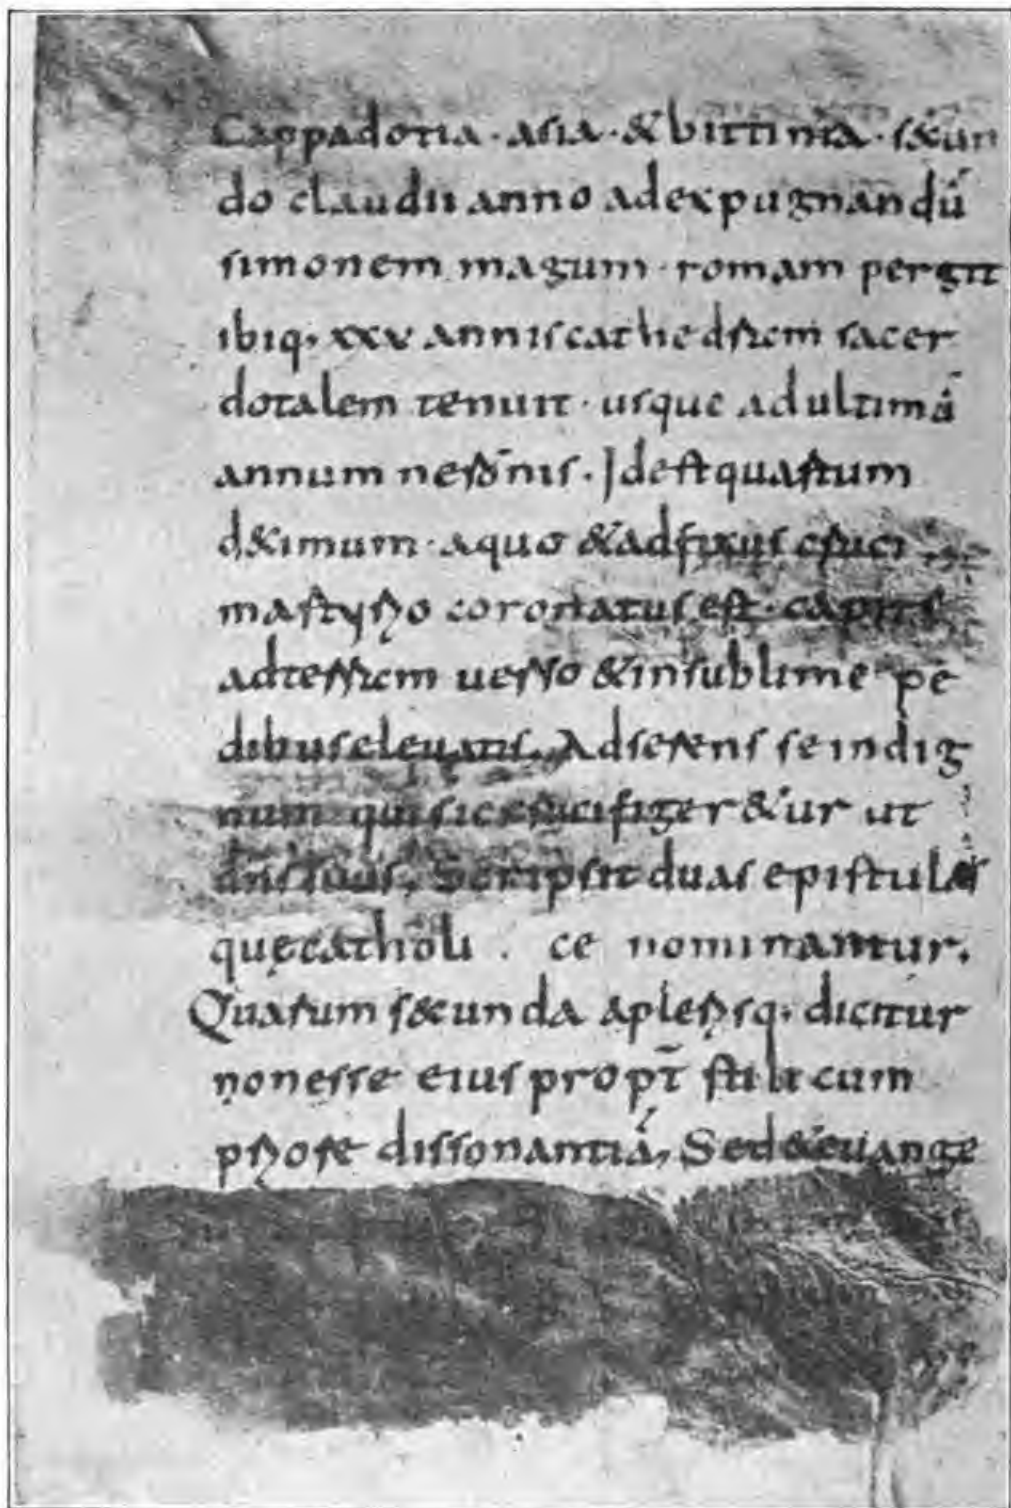 Cappadotia · asia · & bittinia · s&cun
do claudii anno adexpugnandū
simonem magum · romam pergit
ibiq; xxv annis cathedram sacer
dotalem tenuit · usque adultimā
annum neronis · Idest quartum
d&imum · aquo & adfixus cruci
martyrio coronatus est · capite
adterram uerso & insublime pe
dibus eleuatis. Adserens se indig
num qui sic crucifiger&ur ut
dns suus, Scripsit duas epistulas
quę catholi . ce nominantur.
Quarum s&cunda aplerisq; dicitur
nonesse eius propt̄ stili cum
priore dissonantiā, Sed & euange